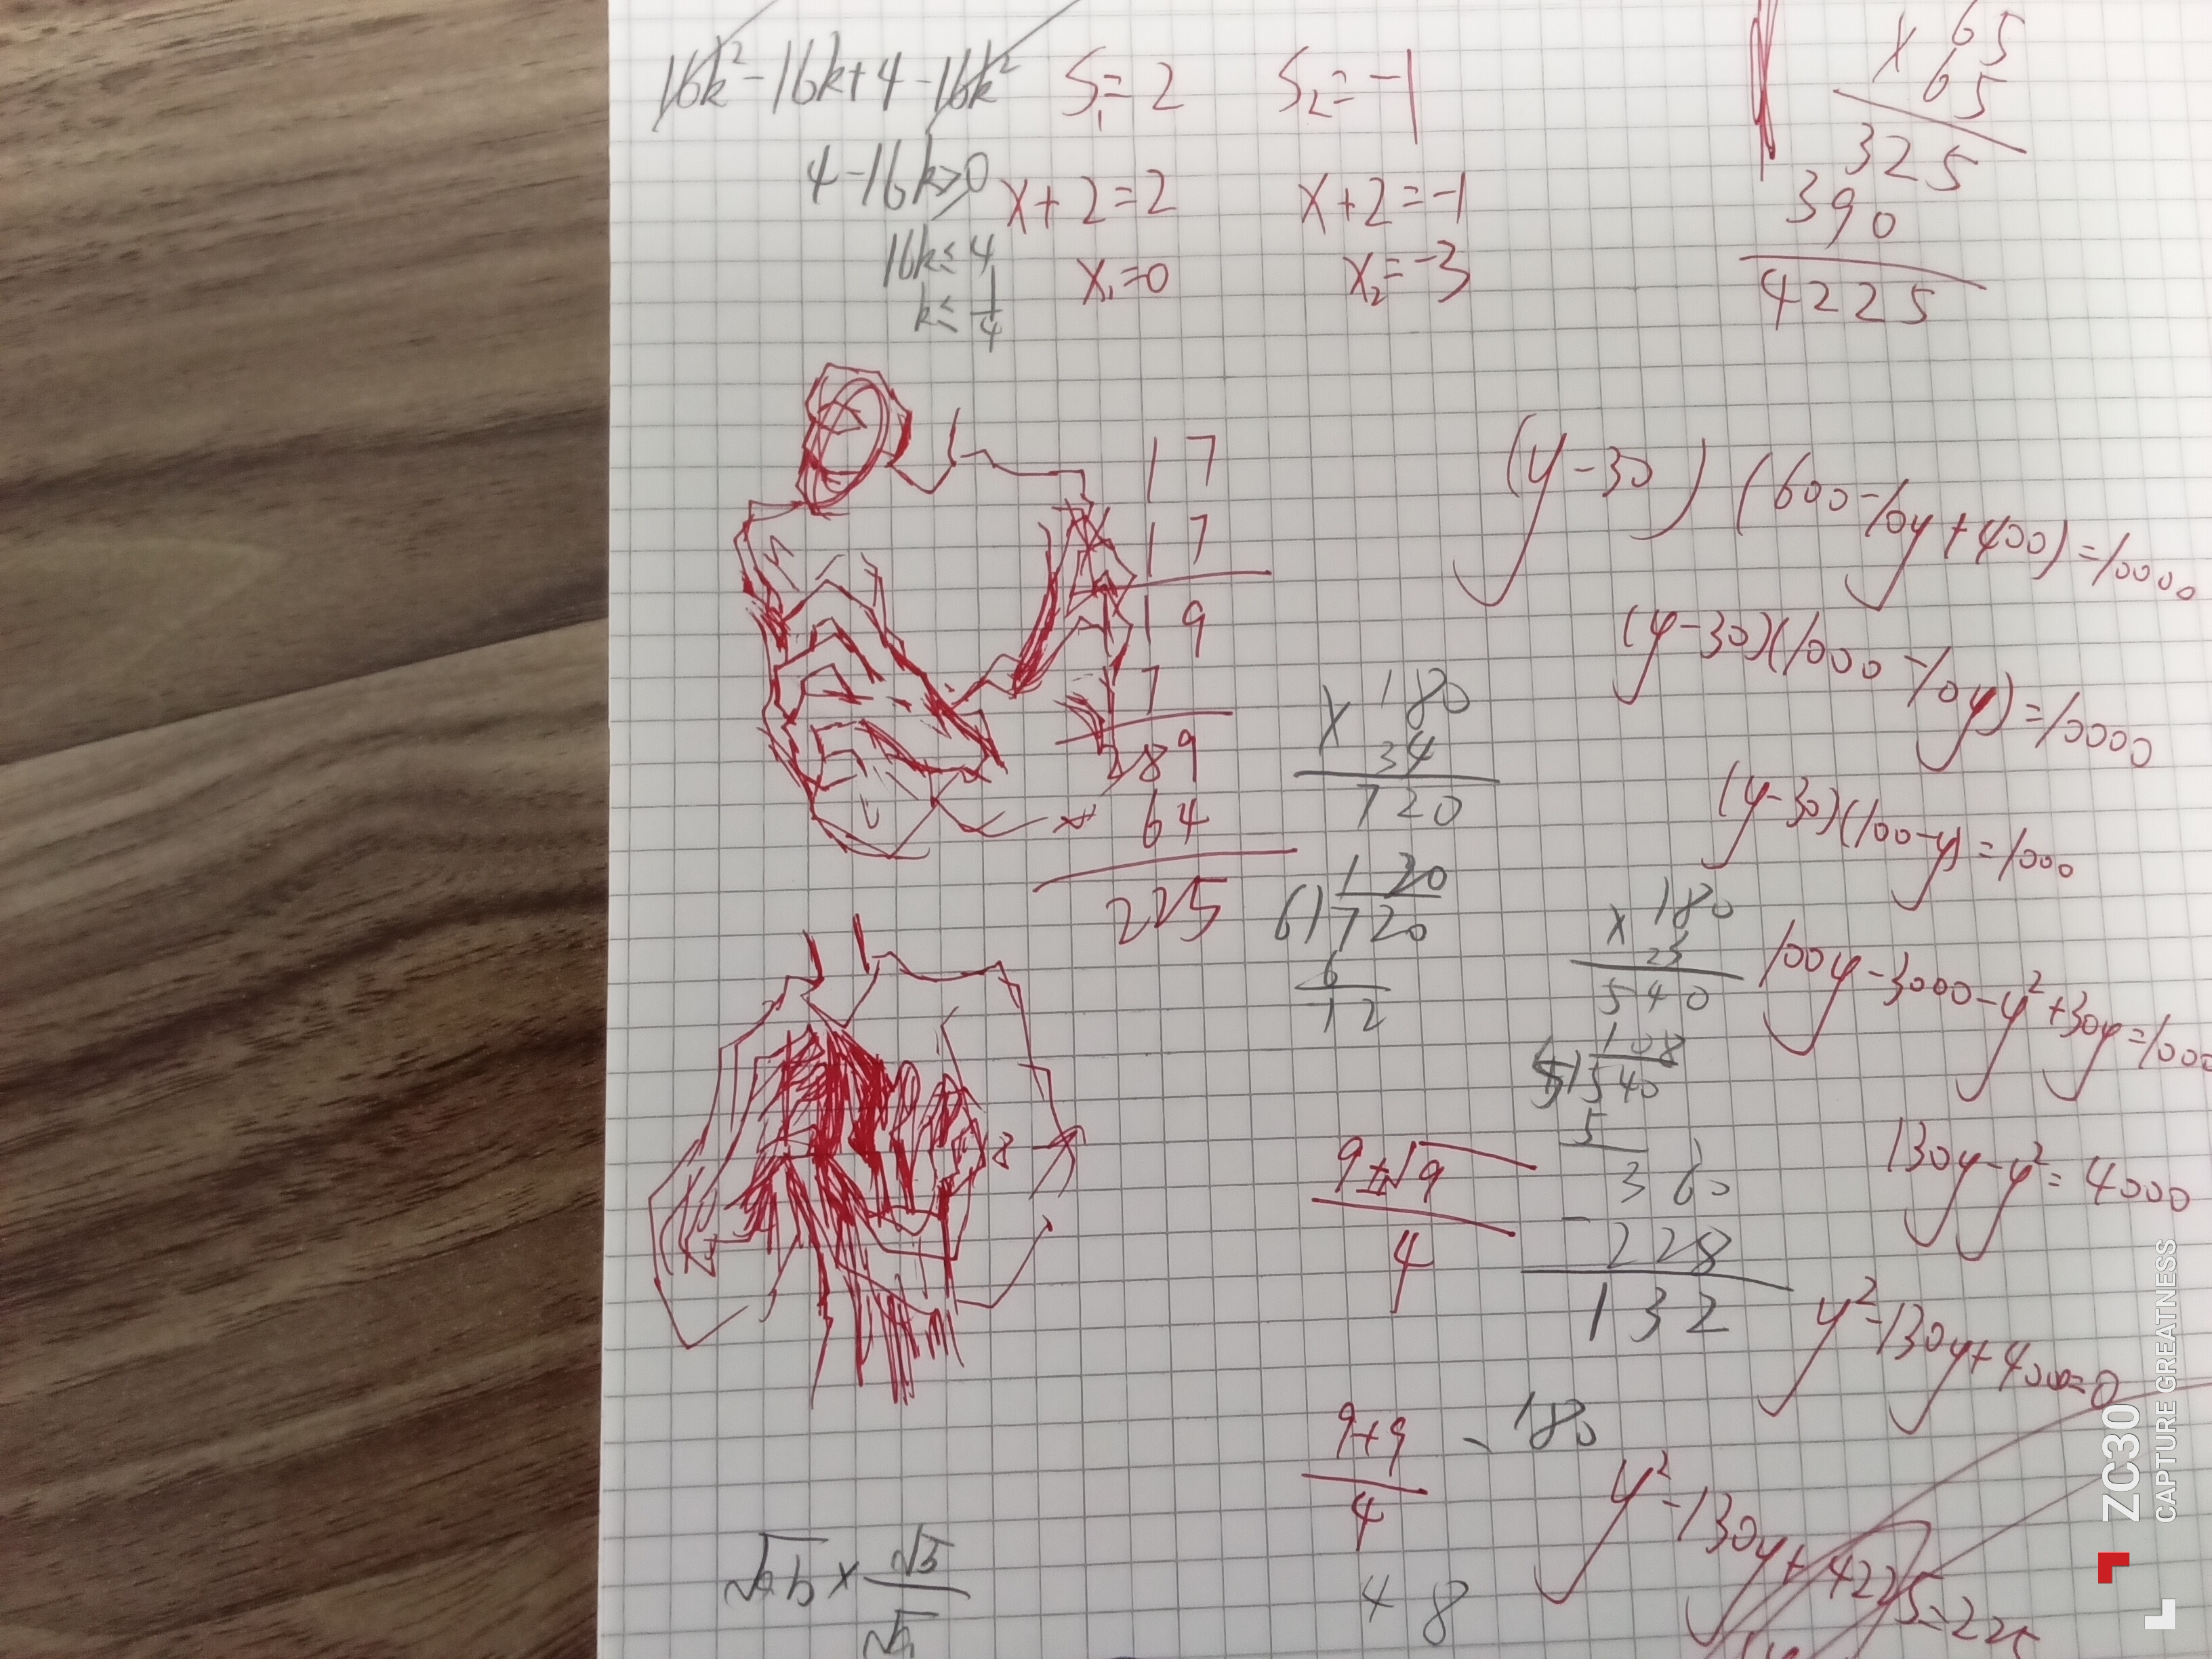 16k²-16k+4-16k²
4-16k≥0
16k≤4
k≤1/4
S₁=2 S₂=-1
x+2=2 x+2=-1
x₁=0 x₂=-3
65
× 65
325
390
4225
17
17
19
7
289
64
225
(y-30)(600-10y+400)=10000
(y-30)(1000-10y)=10000
(y-30)(100-y)=1000
100y-3000-y²+30y=1000
130y-y²=4000
y²-130y+4000=0
y²-130y+4225=225
180
× 34
720
120
6)720
6
12
180
× 23
540
108
5)540
5
360
- 228
132
9±√9
4
9+9
4
- 180
48
8
√ab×√b/√a
ZC30
CAPTURE GREATNESS